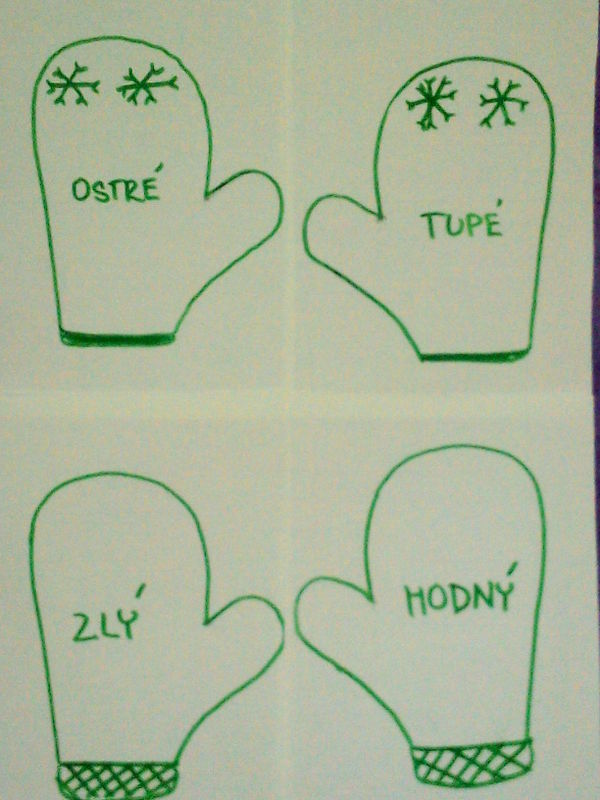 OSTRÉ
TUPÉ
ZLÝ
HODNÝ